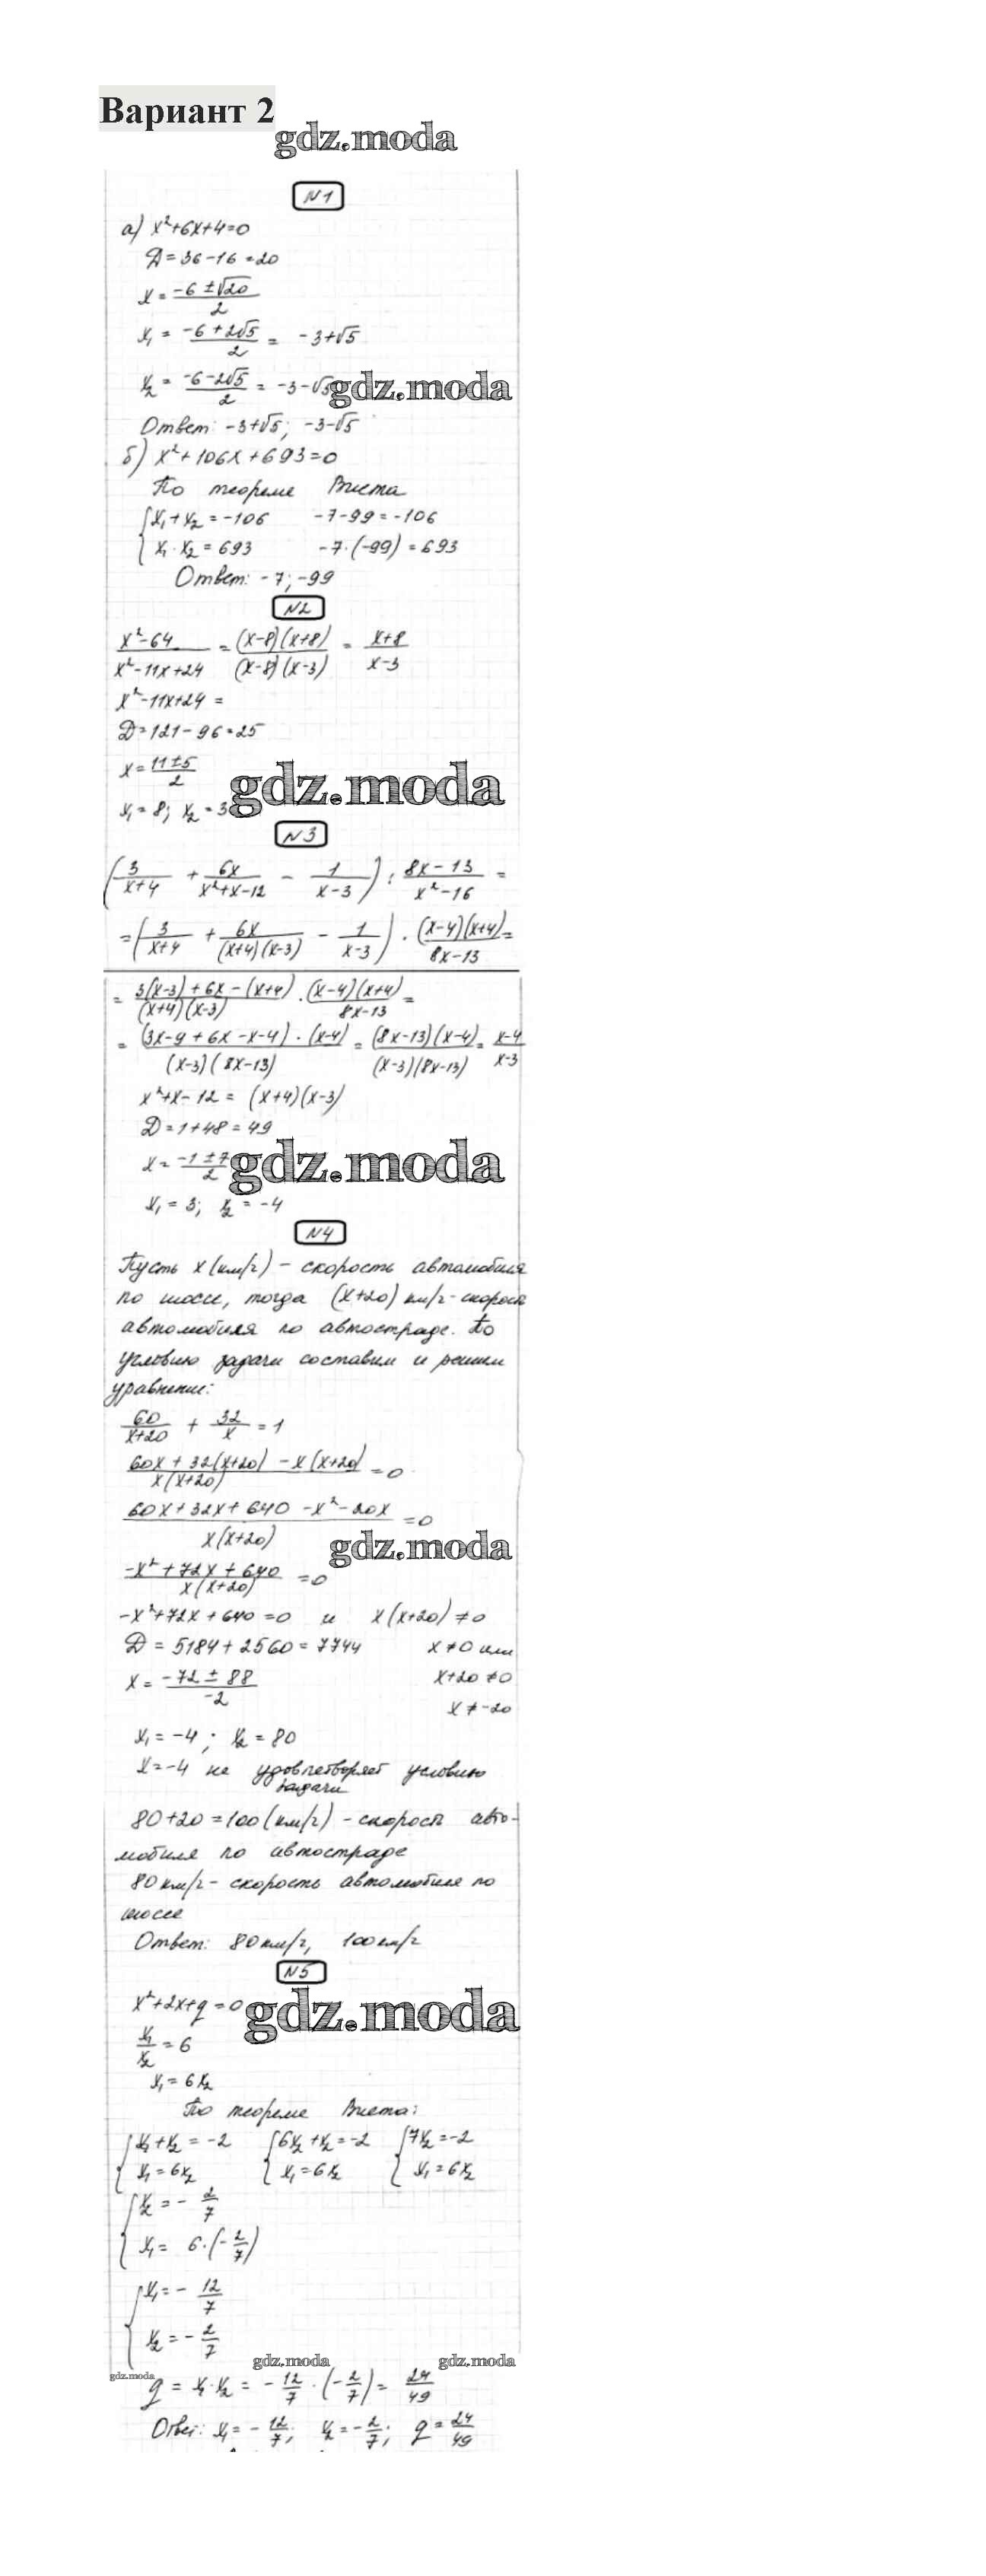 Вариант 2
gdz.moda
N1
а) x²+6x+4=0
Д=36-16=20
x = (-6±√20)/2
x₁ = (-6+2√5)/2 = -3+√5
x₂ = (-6-2√5)/2 = -3-√5
gdz.moda
Ответ: -3+√5; -3-√5
б) x²+106x+693=0
По теореме Виета
{x₁+x₂=-106 -7-99=-106
{x₁·x₂=693 -7·(-99)=693
Ответ: -7; -99
N2
(x²-64)/(x²-11x+24) = ((x-8)(x+8))/((x-8)(x-3)) = (x+8)/(x-3)
x²-11x+24=
Д=121-96=25
x = (11±5)/2
gdz.moda
x₁=8; x₂=3
N3
(3/(x+4) + 6x/(x²+x-12) - 1/(x-3)) : (8x-13)/(x²-16) =
= (3/(x+4) + 6x/((x+4)(x-3)) - 1/(x-3)) · ((x-4)(x+4))/(8x-13) =
= (3(x-3)+6x-(x+4))/((x+4)(x-3)) · ((x-4)(x+4))/(8x-13) =
= ((3x-9+6x-x-4)·(x-4))/((x-3)(8x-13)) = ((8x-13)(x-4))/((x-3)(8x-13)) = (x-4)/(x-3)
x²+x-12 = (x+4)(x-3)
Д=1+48=49
x = (-1±7)/2
gdz.moda
x₁=3; x₂=-4
N4
Пусть x(км/г) - скорость автомобиля
по шоссе, тогда (x+20) км/г-скорость
автомобиля по автостраде. По
условию задачи составим и решим
уравнение:
60/(x+20) + 32/x = 1
(60x+32(x+20)-x(x+20))/(x(x+20)) = 0
(60x+32x+640-x²-20x)/(x(x+20)) = 0
gdz.moda
(-x²+72x+640)/(x(x+20)) = 0
-x²+72x+640=0 и x(x+20)≠0
Д=5184+2560=7744 x≠0 или
x = (-72±88)/(-2) x+20≠0
x≠-20
x₁=-4; x₂=80
x=-4 не удовлетворяет условию
задачи
80+20=100(км/г) - скорость авто-
мобиля по автостраде
80 км/г - скорость автомобиля по
шоссе
Ответ: 80 км/г, 100 км/г
N5
x²+2x+q=0
gdz.moda
x₁/x₂ = 6
x₁=6x₂
По теореме Виета:
{x₁+x₂=-2 {6x₂+x₂=-2 {7x₂=-2
{x₁=6x₂ {x₁=6x₂ {x₁=6x₂
{x₂ = -2/7
{x₁ = 6·(-2/7)
{x₁ = -12/7
{x₂ = -2/7
gdz.moda gdz.moda
gdz.moda
q = x₁·x₂ = -12/7·(-2/7) = 24/49
Ответ: x₁ = -12/7; x₂ = -2/7; q = 24/49